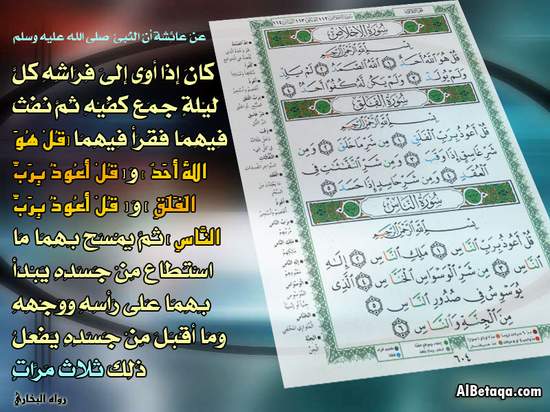 عن عائشة أن النبي صلى الله عليه وسلم
كان إذا أوى إلى فراشه كل
ليلة جمع كفيه ثم نفث
فيهما فقرأ فيهما (قل هُوَ
اللهُ أحَدٌ) و( قُلْ أعُوذُ بِرَبِّ
الفلق ) و( قُلْ أعُوذُ بِرَبِّ
النَّاسِ ) ثمّ يمْسَحُ بهما ما
استطاع منْ جسَده يبْدأ
بهمَا على رأسه ووجْهه
وما أقبل منْ جَسَده يفعلُ
ذلك ثلاث مرّات
رواه البخاري
سُورَةُ الْإِخْلَاصِ
بِسْمِ اللَّهِ الرَّحْمَٰنِ الرَّحِيمِ
قُلْ هُوَ اللَّهُ أَحَدٌ ١ اللَّهُ الصَّمَدُ ٢ لَمْ يَلِدْ
وَلَمْ يُولَدْ ٣ وَلَمْ يَكُن لَّهُ كُفُوًا أَحَدٌ ٤
سُورَةُ الْفَلَقِ
بِسْمِ اللَّهِ الرَّحْمَٰنِ الرَّحِيمِ
قُلْ أَعُوذُ بِرَبِّ الْفَلَقِ ١ مِن شَرِّ مَا خَلَقَ ٢ وَمِن
شَرِّ غَاسِقٍ إِذَا وَقَبَ ٣ وَمِن شَرِّ النَّفَّاثَاتِ فِي
الْعُقَدِ ٤ وَمِن شَرِّ حَاسِدٍ إِذَا حَسَدَ ٥
سُورَةُ النَّاسِ
بِسْمِ اللَّهِ الرَّحْمَٰنِ الرَّحِيمِ
قُلْ أَعُوذُ بِرَبِّ النَّاسِ ١ مَلِكِ النَّاسِ ٢ إِلَٰهِ
النَّاسِ ٣ مِن شَرِّ الْوَسْوَاسِ الْخَنَّاسِ ٤ الَّذِي
يُوَسْوِسُ فِي صُدُورِ النَّاسِ ٥
مِنَ الْجِنَّةِ وَالنَّاسِ ٦
٦٠٤
AlBetaqa.com